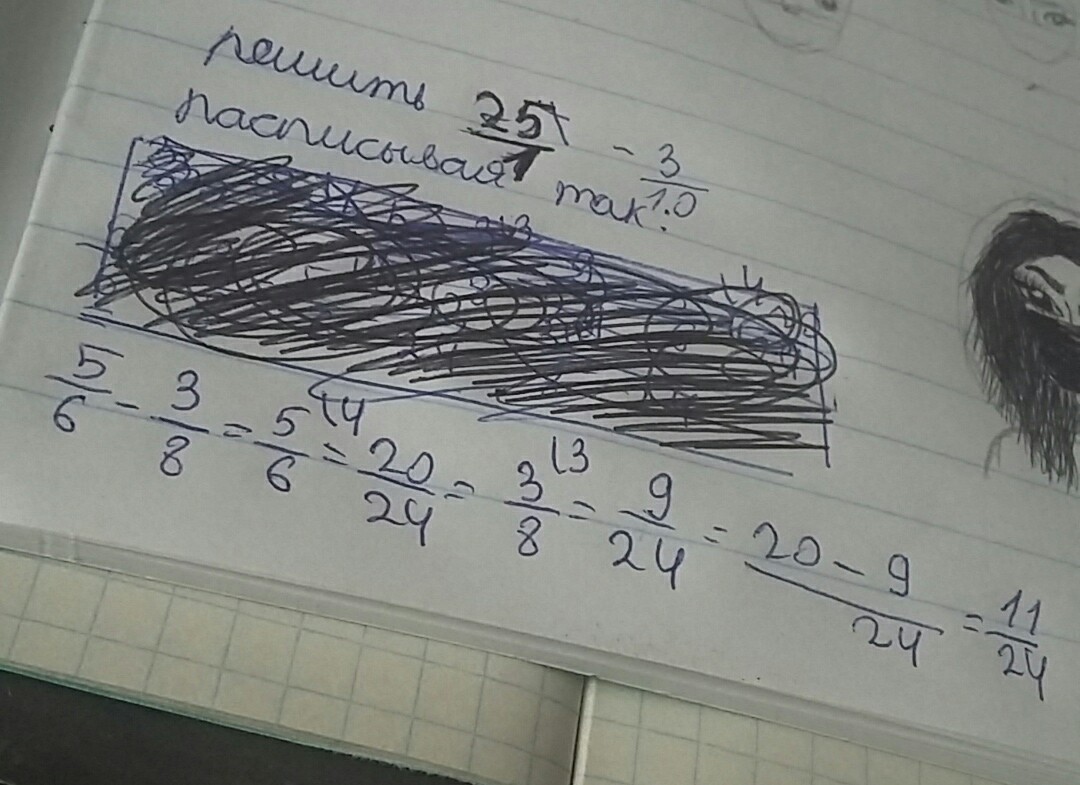 решить 25/1 - 3/10
расписывая так:
5/6 - 3/8 = 5/6 \4 = 20/24 = 3/8 \3 = 9/24 = 20 - 9/24 = 11/24